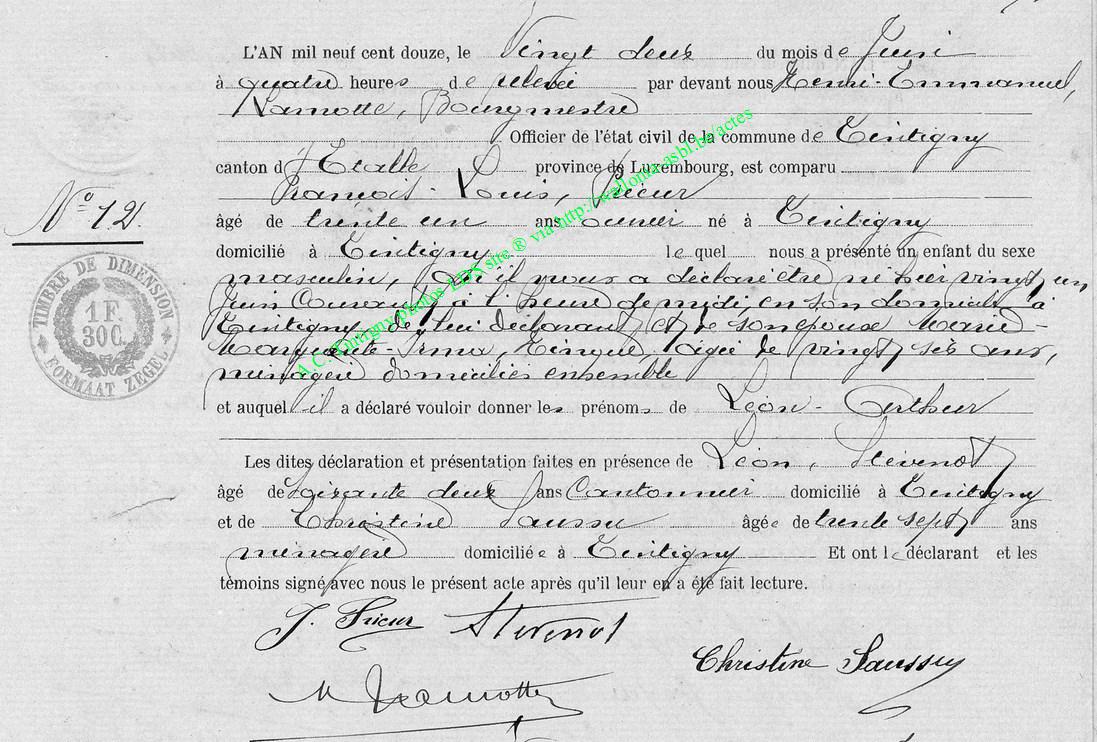 L'AN mil neuf cent douze, le Vingt deux du mois de Juin
à quatre heures de relevée par devant nous Henri-Emmanuel,
Lamotte, Bourgmestre
Officier de l'état civil de la commune de Tintigny
canton d'Etalle province de Luxembourg, est comparu
François-Louis, Prieur
N° 12.
âgé de trente un ans né à Tintigny
domicilié à Tintigny le quel nous a présenté un enfant du sexe
masculin, qu'il nous a déclaré être né hier vingt un
Juin courant à l'heure de midi, en son domicile à
Tintigny de lui déclarant et de son épouse Marie-
Marguerite-Irma, âgée de vingt six ans,
ménagère domiciliés ensemble
et auquel il a déclaré vouloir donner les prénoms de Léon-Arthur
Les dites déclaration et présentation faites en présence de Léon, Stévenot
âgé de soixante deux ans Cantonnier domicilié à Tintigny
et de Christine Saussu âgée de trente sept ans
ménagère domiciliée à Tintigny Et ont le déclarant et les
témoins signé avec nous le présent acte après qu'il leur en a été fait lecture.
J. Prieur Stévenot
Christine Saussu
Lamotte
TIMBRE DE DIMENSION
1F.
30C.
FORMAAT ZEGEL
A.C. Tintigny photos LDX site ® via http://wallonia-asbl.be/actes